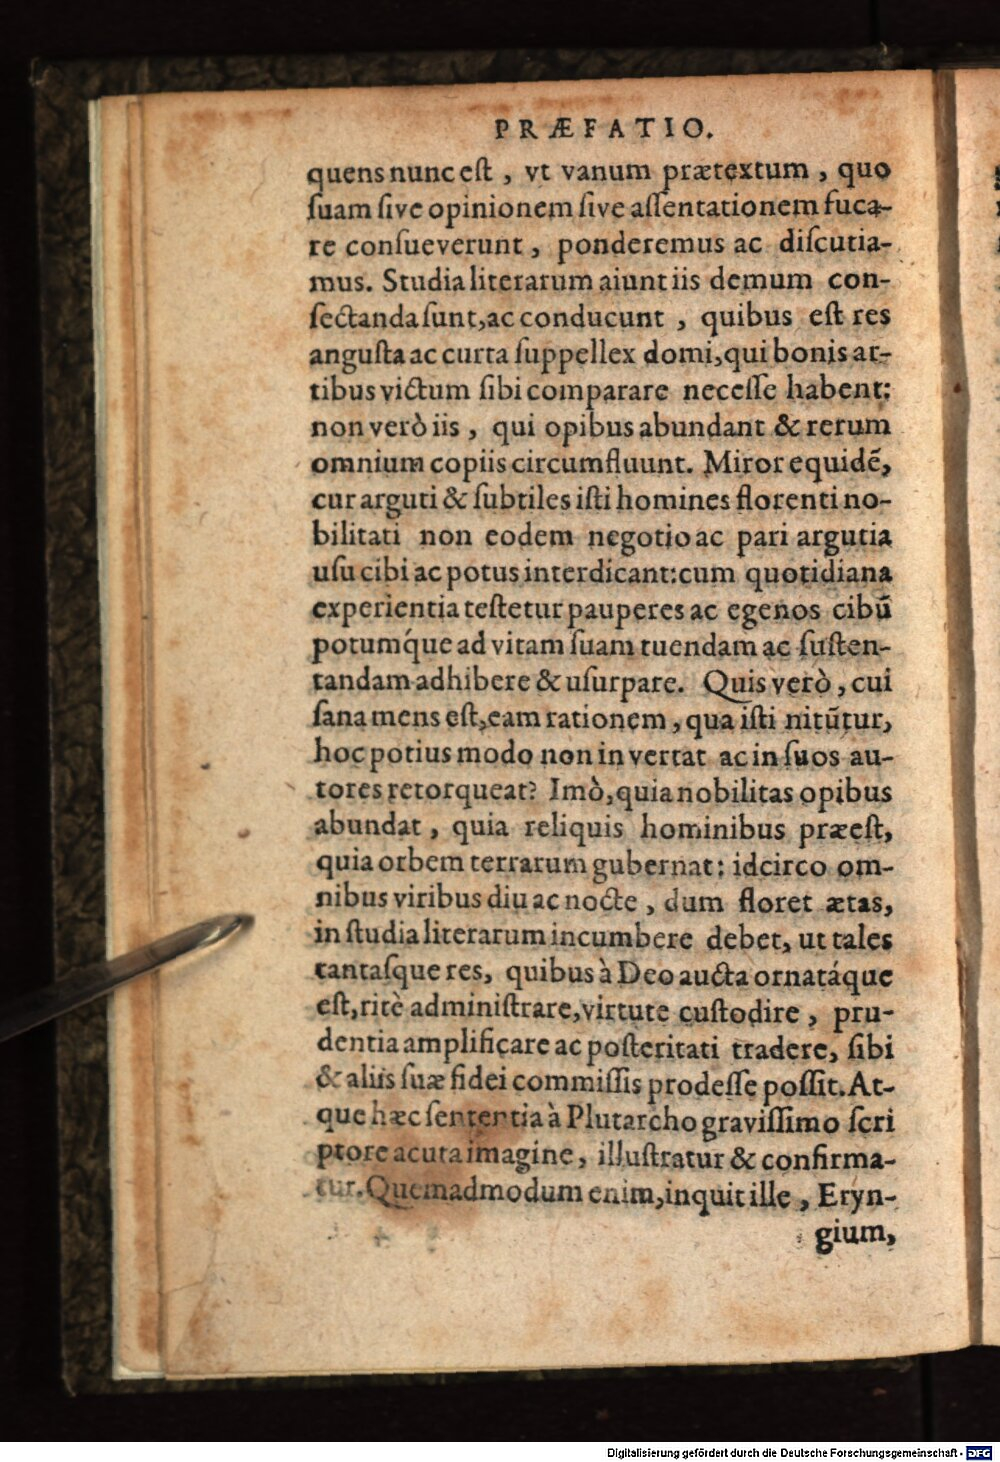 PRÆFATIO.
quens nunc eſt, vt vanum prætextum, quo
ſuam ſive opinionem ſive aſſentationem fuca-
re conſueverunt, ponderemus ac diſcutia-
mus. Studia literarum aiunt iis demum con-
ſectanda ſunt, ac conducunt, quibus eſt res
anguſta ac curta ſuppellex domi, qui bonis ar-
tibus victum ſibi comparare neceſſe habent:
non verò iis, qui opibus abundant & rerum
omnium copiis circumfluunt. Miror equidẽ,
cur arguti & ſubtiles iſti homines florenti no-
bilitati non eodem negotio ac pari argutia
uſu cibi ac potus interdicant: cum quotidiana
experientia teſtetur pauperes ac egenos cibũ
potumq́ue ad vitam ſuam tuendam ac ſuſten-
tandam adhibere & uſurpare. Quis verò, cui
ſana mens eſt, eam rationem, qua iſti nitũtur,
hoc potius modo non invertat ac in ſuos au-
tores retorqueat? Imò, quia nobilitas opibus
abundat, quia reliquis hominibus præeſt,
quia orbem terrarum gubernat: idcirco om-
nibus viribus diu ac nocte, dum floret ætas,
in ſtudia literarum incumbere debet, ut tales
tantaſque res, quibus à Deo aucta ornatáque
eſt, ritè adminiſtrare, virtute cuſtodire, pru-
dentia amplificare ac poſteritati tradere, ſibi
& aliis ſuæ fidei commiſſis prodeſſe poſſit. At-
que hæc ſententia à Plutarcho graviſſimo ſcri
ptore acuta imagine, illuſtratur & confirma-
tur. Quemadmodum enim, inquit ille, Eryn-
gium,
Digitalisierung gefördert durch die Deutsche Forschungsgemeinschaft - DFG